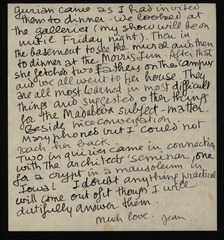 Gurian came as I had invited
them to dinner - We looked at
the galleries (my show will be on
until Friday night). Then in
the basement to see the mural and then
to dinner at the Morris Inn. After that
she fetched two fathers on the campus
and we all went to her house. They
are all most learned in most difficult
things and suggested other things
for the Madeleva subject-matter
beside in conversation.
Mary phones but I could not
reach her back.
Two inquiries came in connection
with the architects' seminar, one
for a crypt in a mausoleum in
Iowa! I doubt anything practical
will come out of it though I will
dutifully answer them
Much love - Jean